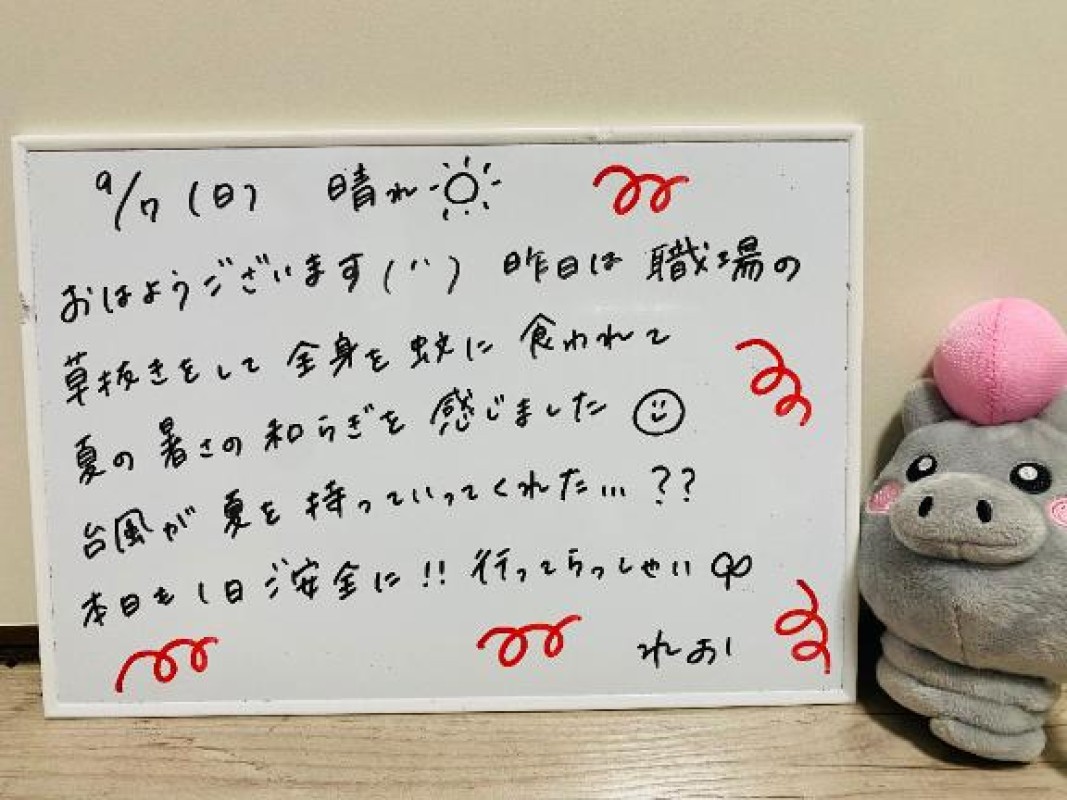 9/7(日) 晴れ
おはようございます(¨) 昨日は職場の
草抜きをして全身を蚊に食われて
夏の暑さの和らぎを感じました
台風が夏を持っていってくれた...??
本日も1日ご安全に!! 行ってらっしゃい
れお